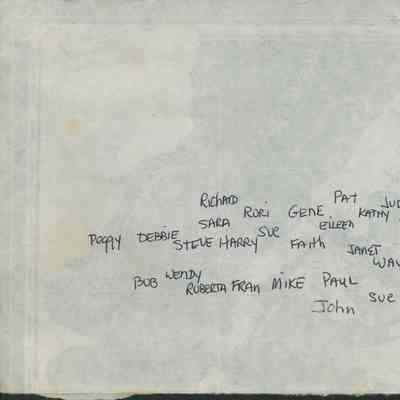 RICHARD PAT
RORI GENE KATHY
SARA EILEEN
PEGGY DEBBIE STEVE HARRY SUE FAITH JANET
BOB WENDY ROBERTA FRAN MIKE PAUL
John SUE